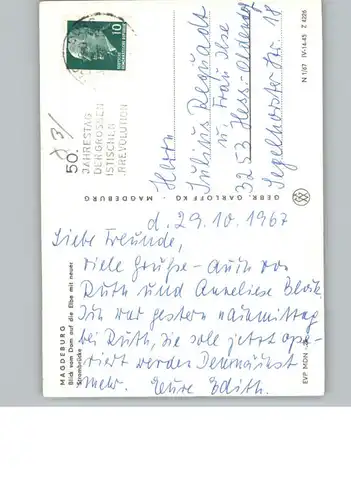 10
50.
JAHRESTAG
DER GROSSEN
ISTISCHEN
RREVOLUTION
Herrn
Julius Degnadt
u. Frau Ilse
3253 Hess.-Oldendorf
Segelhorster Str. 18
GEBR. GARLOFF KG · MAGDEBURG
N 1/67 IV-14-45 Z 4226
d. 29.10.1967
Liebe Freunde,
viele Grüße - auch von
Ruth und Anneliese
Ich war gestern Nachmittag
bei Ruth, die sole jetzt ope-
riert werden Demnächst
mehr. Eure Edith.
MAGDEBURG
Blick vom Dom auf die Elbe mit neuer
Strombrücke
EVP MDN